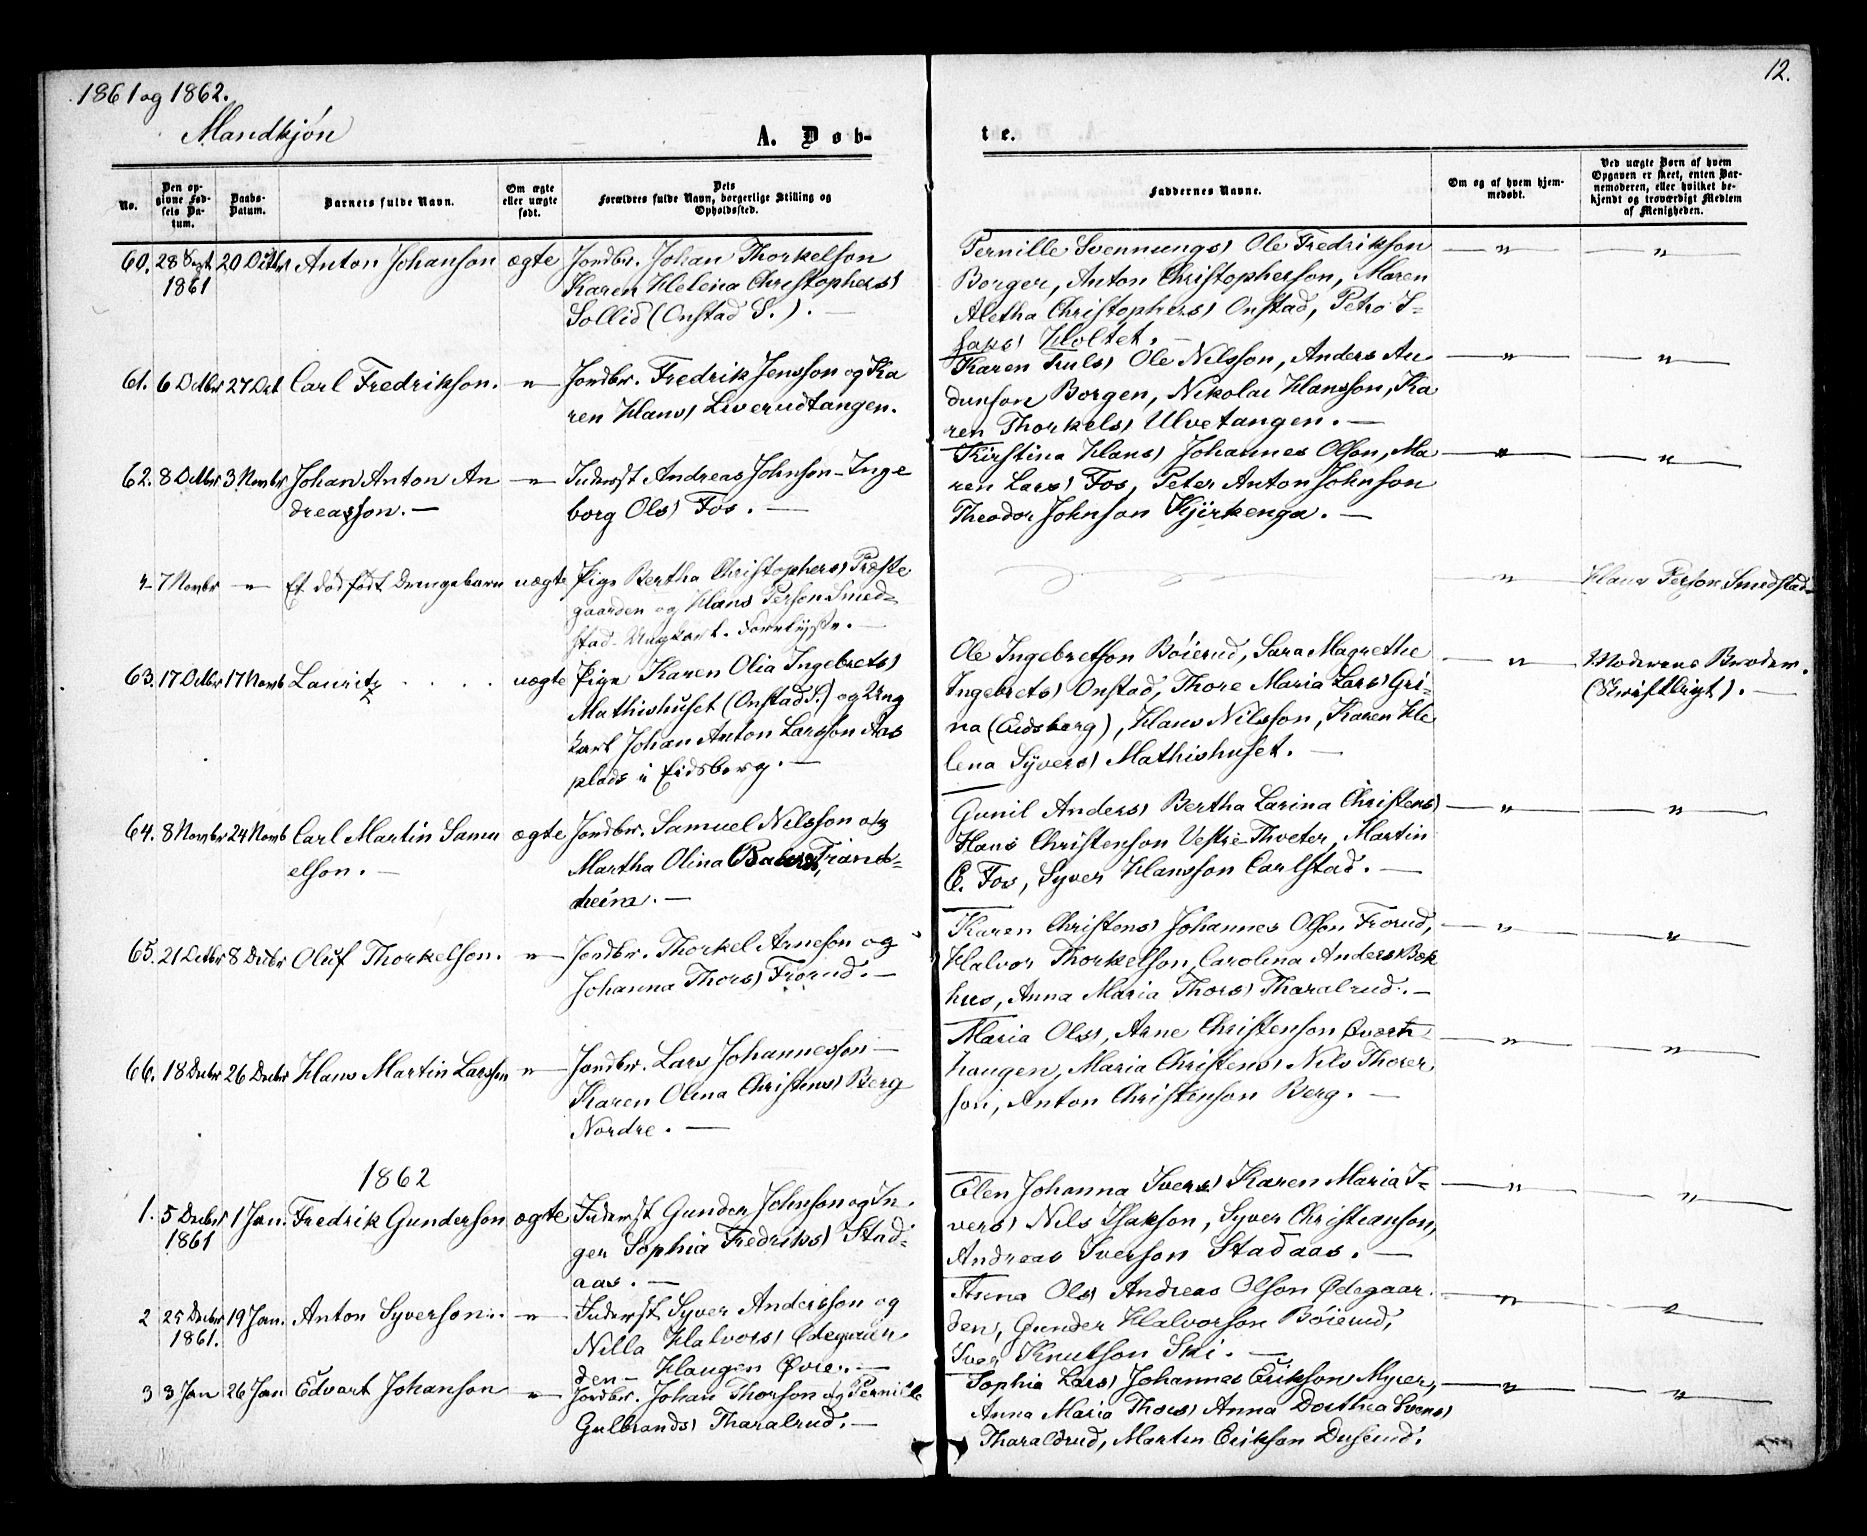 1861 og 1862.
12.
Mandkjön
A. Døb-
te.
No.
Den op-
givne Fød-
sels Da-
tum.
Daabs-
Datum.
Barnets fulde Navn.
Om ægte
eller uægte
født.
Dets
Forældres fulde Navn, borgerlige Stilling og
Opholdssted.
Faddernes Navne.
Om og af hvem hjem-
medøbt.
Ved uægte Børn af hvem
Opgaven er skeet, enten Bar-
nemoderen, eller hvilket be-
kjendt og troværdigt Medlem
af Menigheden.
60. 28 Sept. 20 Octbr Anton Johanson ægte Jordbr. Johan Thorkelson
1861 Karen Helena Christophers)
Sollid (Onstad S.). —
Pernille Svennungs) Ole Fredrikson — " — — " —
Borger, Anton Christopherson, Maren
Aletha Christophers) Onstad, Petro I-
saks) Holtet. —
61. 6 Octbr 27 Oct Carl Fredrikson. — " — Jordbr. Fredrik Jensson og Ka
ren Hans) Liverudtangen.
Karen Truls) Ole Nilsson, Anders An — " — — " —
dunson Borgen, Nikolai Hansson, Ka
ren Thorkels) Ulvetangen. —
62. 8 Octbr 3 Novbr Johan Anton An — " — Inderst Andreas Johnson – Inge
dreasson. — borg Ols) Fos. —
Kirstina Hans) Johannes Olson, Ma — " — — " —
ren Lars) Fos, Peter Anton Johnson
Theodor Johnson Kjirkenga. —
4 7 Novbr — " — Et dødfødt Drengebarn uægte Pige Bertha Christophers) Præste
gaarden og Hans Person Smed-
stad. Ungkarl.
— " — Hans Person Smedstad
63. 17 Octbr 17 Novb Lauritz . . . . uægte Pige Karen Olia Ingebrets)
Mathishuset (Onstad S.) og Ung
karl Johan Anton Larsson Aas
plads i Eidsberg. —
Ole Ingebretson Böierud, Sara Magrethe — " — Moderens Broder.
Ingebrets) Onstad, Thore Maria Lars) Gri- (Skriftligt). —
na (Eidsberg), Hans Nilsson, Karen He
lena Syvers) Mathishuset. —
64. 8 Novbr 24 Novb Carl Martin Samu ægte Jordbr. Samuel Nilsson og
elson. — Martha Olina Trand-
heim. —
Gunil Anders) Bertha Larina Christens) — " — — " —
Hans Christenson Vestre Thveter, Martin
C. Fos, Syver Hansson Carlstad. —
65. 21 Octbr 8 Decbr Oluf Thorkelson. — " — Jordbr. Thorkel Arneson og
Johanna Thors) Frorud. —
Karen Christens) Johannes Olson Frorud, — " — — " —
Halvor Thorkelson, Carolina Anders) Bak
hus, Anna Maria Thors) Tharalrud. —
66. 18 Decbr 26 Decbr Hans Martin Larsson — " — Jordbr. Lars Johannesson —
Karen Olina Christens) Berg
Nordre. —
Maria Ols), Arne Christenson Qvern — " — — " —
haugen, Maria Christens) Nils Thorer
son, Anton Christenson Berg. —
1862
1. 5 Decbr 1 Jan. Fredrik Gunderson ægte Inderst Gunder Johnson og In.
1861 ger Sophia Fredriks) Stad-
aas. —
Elen Johanna Ivers) Karen Maria I- — " — — " —
vers) Nils Isakson, Syver Christianson,
Andreas Iverson Stadaas. —
2 25 Decbr 19 Jan. Anton Syverson. — " — Inderst Syver Andersson og
1861. Nilla Halvors) Ødegaar
den – Haugen Øvre. —
Anna Ols) Andreas Olson Ødegaar. — " — — " —
den, Gunder Halvorson Böierud,
Iver Knutson Ski. —
3 3 Jan 26 Jan Edvart Johanson — " — Jordbr. Johan Thorson og Pernille
Gulbrands) Tharalrud. —
Sophia Lars) Johannes Erikson Myrer, — " — — " —
Anna Maria Thors) Anna Dorthea Svens)
Tharaldrud, Martin Erikson Duserud.